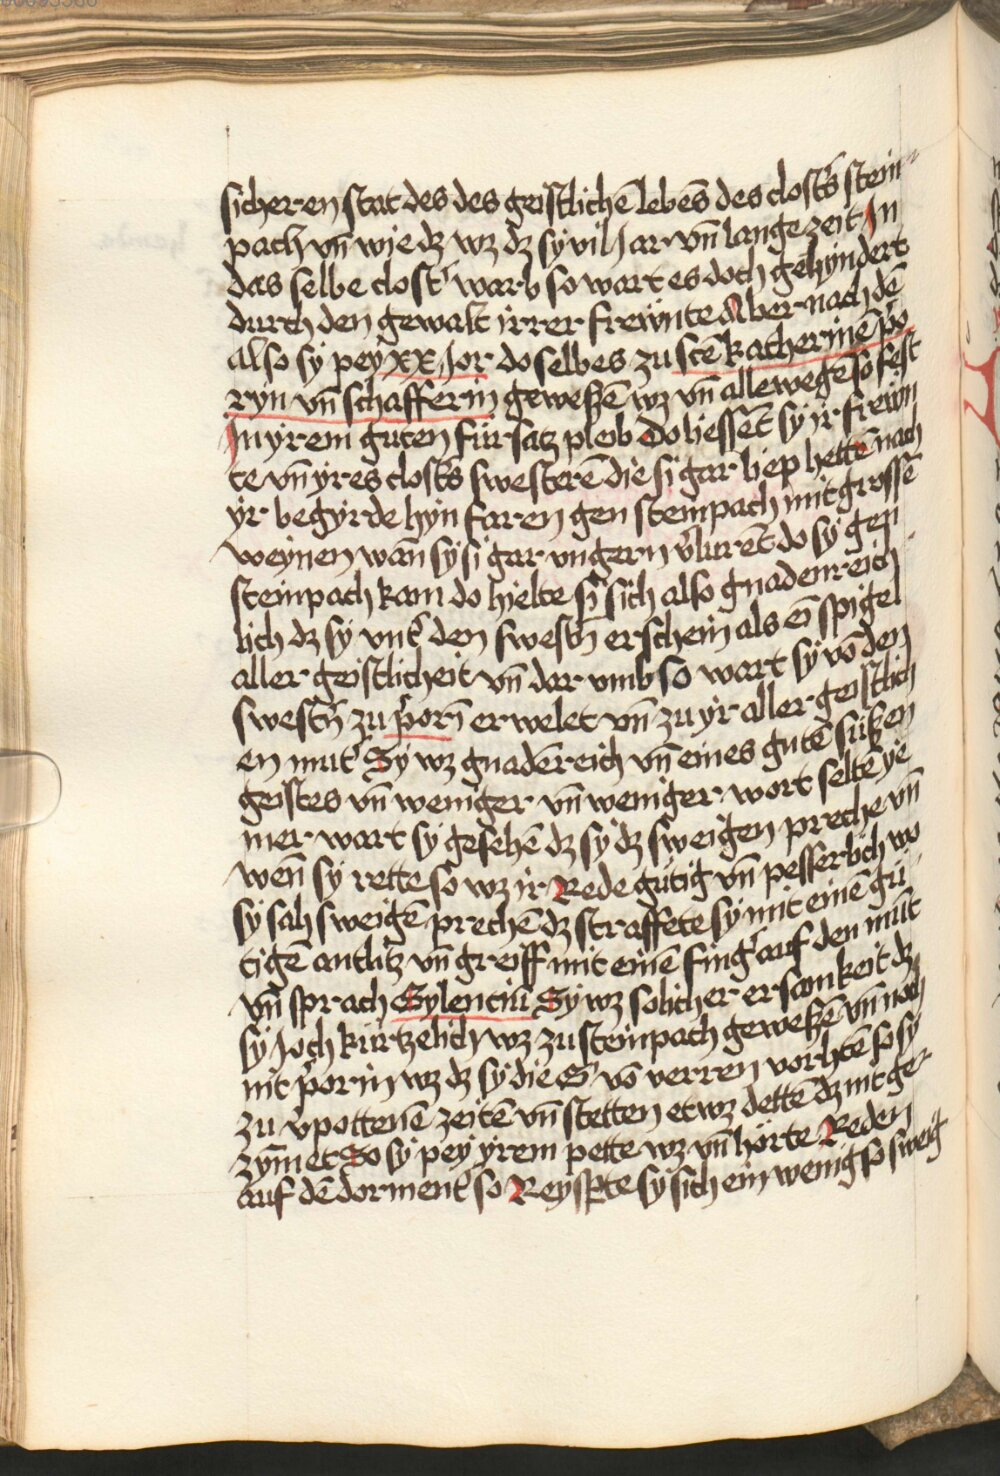 sicheren stat des des geistlichē lebēs des clost's stein
pach vn̄ wie dz wz dz sÿ vil Jar vn̄ lange zeit In
das selbe clost' warb so wart es doch gehyndert
durch den gewalt irrer freẅnte Aber nach dē
also sÿ peÿ XX Jor do selbes zu scē katherinē p'o
ryn vn̄ schafferin geweßē wz vn̄ allewegē so fest
In ÿrem guten fürsatz pleib do liessēt sÿ ir freẅn
te vn̄ ÿres clost's swesterē die si gar liep hettē nach
ÿr begÿrde hÿn faren gen steinpach mit grossē
weÿnen wan̄ sÿ si gar vngern v'lurēt do sÿ gen
steinpach kam do hielte si sich also gnadenreich
lich dz sÿ vnt' den swest'n erschein als eī spigel
aller geistlicheit vn̄ dar vmb so wart sÿ vō den
swest'n zu p'orī erwelet vn̄ zu ÿr aller geistlich
en mut' Sÿ wz gnadēreich vn̄ eines gutē süßen
geistes vn̄ weniger vn̄ weniger wort seltē ye
mer wart sÿ gesehē dz sÿ dz sweigen preche vn̄
wēn sÿ rette so wz ir Rede gütig vn̄ pesserlich wo
sÿ sah sweigē prechē dz straffete sÿ mit einē gü
tigē antlitz vn̄ greiff mit einē fing' auf den mūt
vn̄ sprach Sylenciū Sÿ wz solicher ersamkeit dz
sÿ Joch kürtzelich wz zu steinpach geweßē vn̄ noch
nit p'orin wz dz sÿ die S' vō verren vorhtē so sÿ
zu v'pottenē zeitē vn̄ stetten etwz dettē dz nit ge
zÿmet So sÿ peÿ ÿrem pette wz vn̄ hörte Reden
auf dē dorment' so Reÿspte sÿ sich ein wenig so sweig